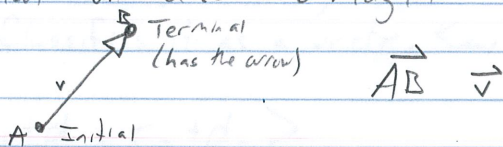 B Terminal
(has the arrow)
v
A Initial
AB v